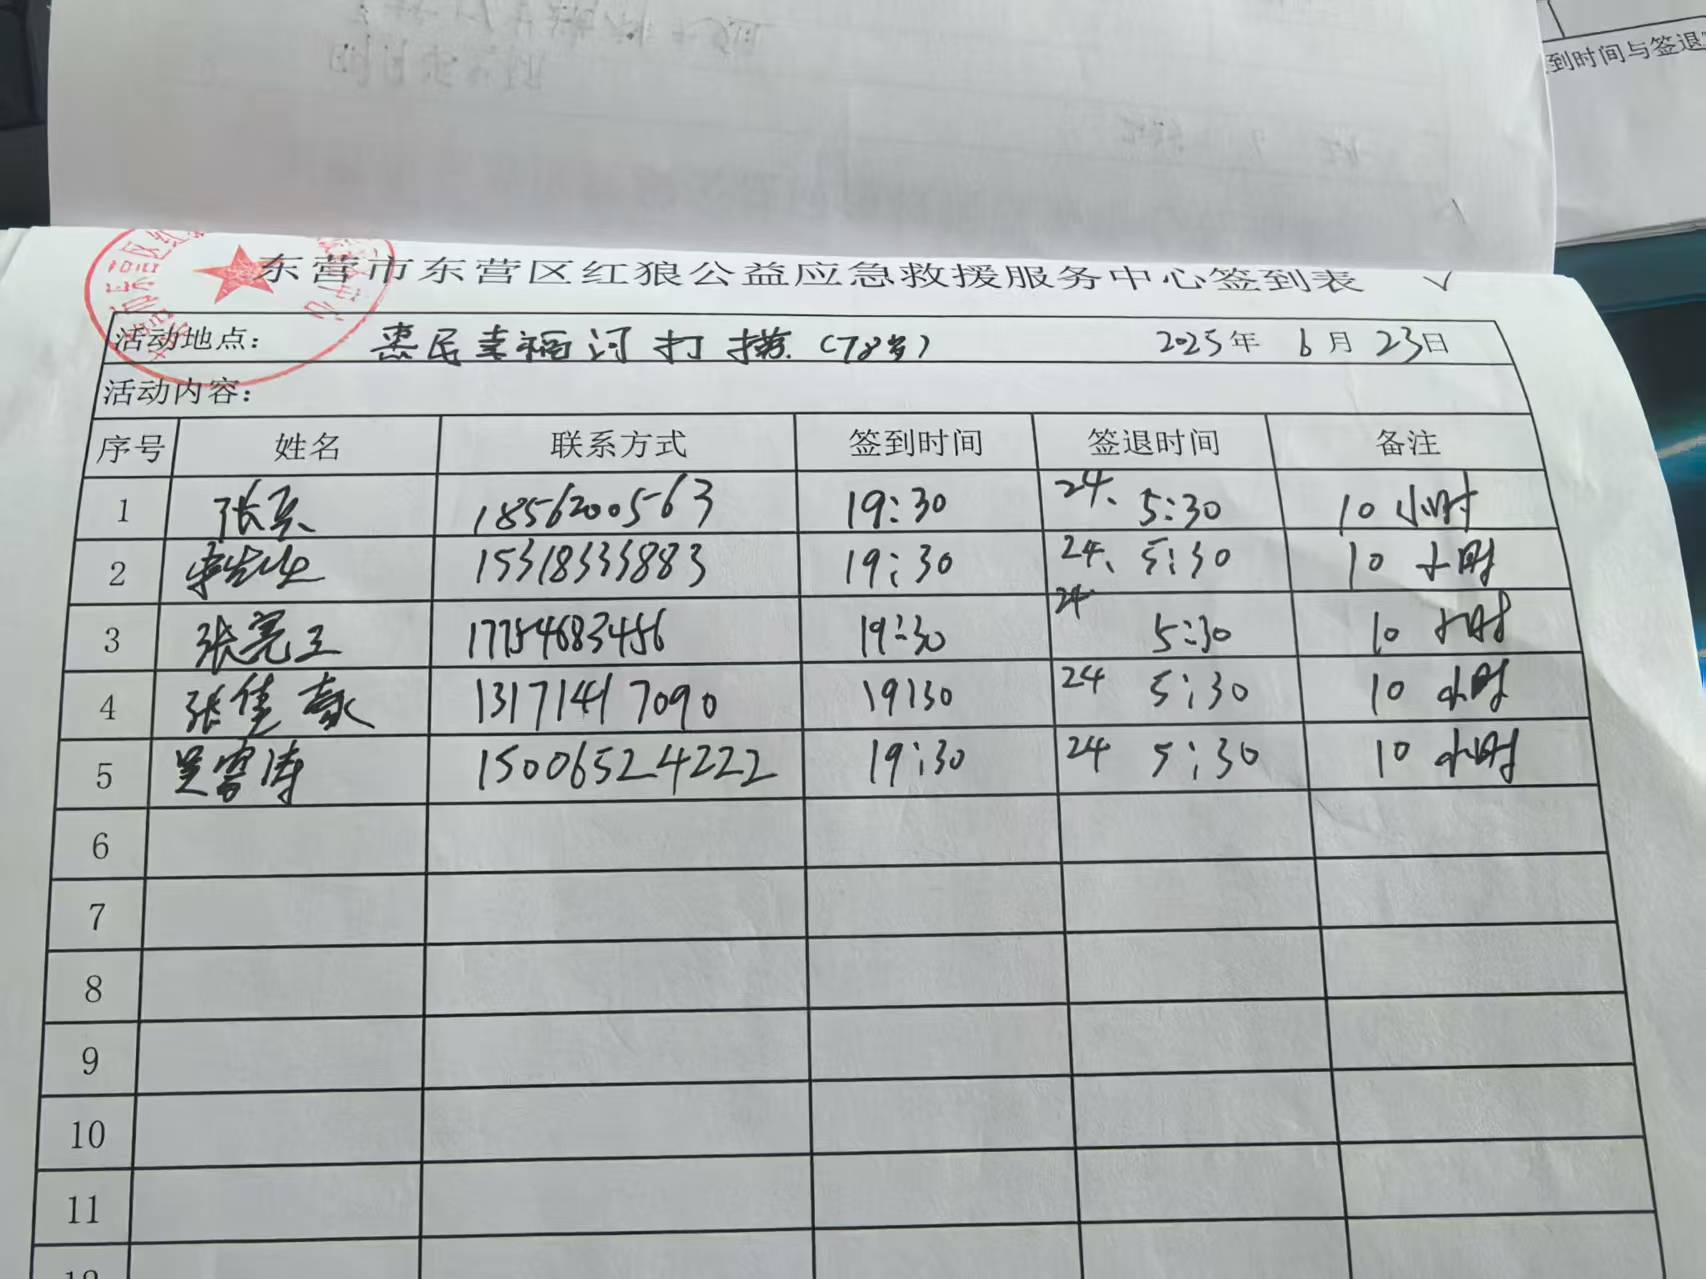 到时间与签退
东营市东营区红狼公益应急救援服务中心签到表 √
活动地点： 惠民幸福河打捞（78岁） 2025年 6月 23日
活动内容：
序号 姓名 联系方式 签到时间 签退时间 备注
1 张 18562005563 19:30 24、5:30 10小时
2 15318333883 19:30 24、5:30 10小时
3 张亮王 17754683456 19:30 24 5:30 10小时
4 张佳 13171417090 19:30 24 5:30 10小时
5 吴雪涛 15006524222 19:30 24 5:30 10小时
6
7
8
9
10
11
12